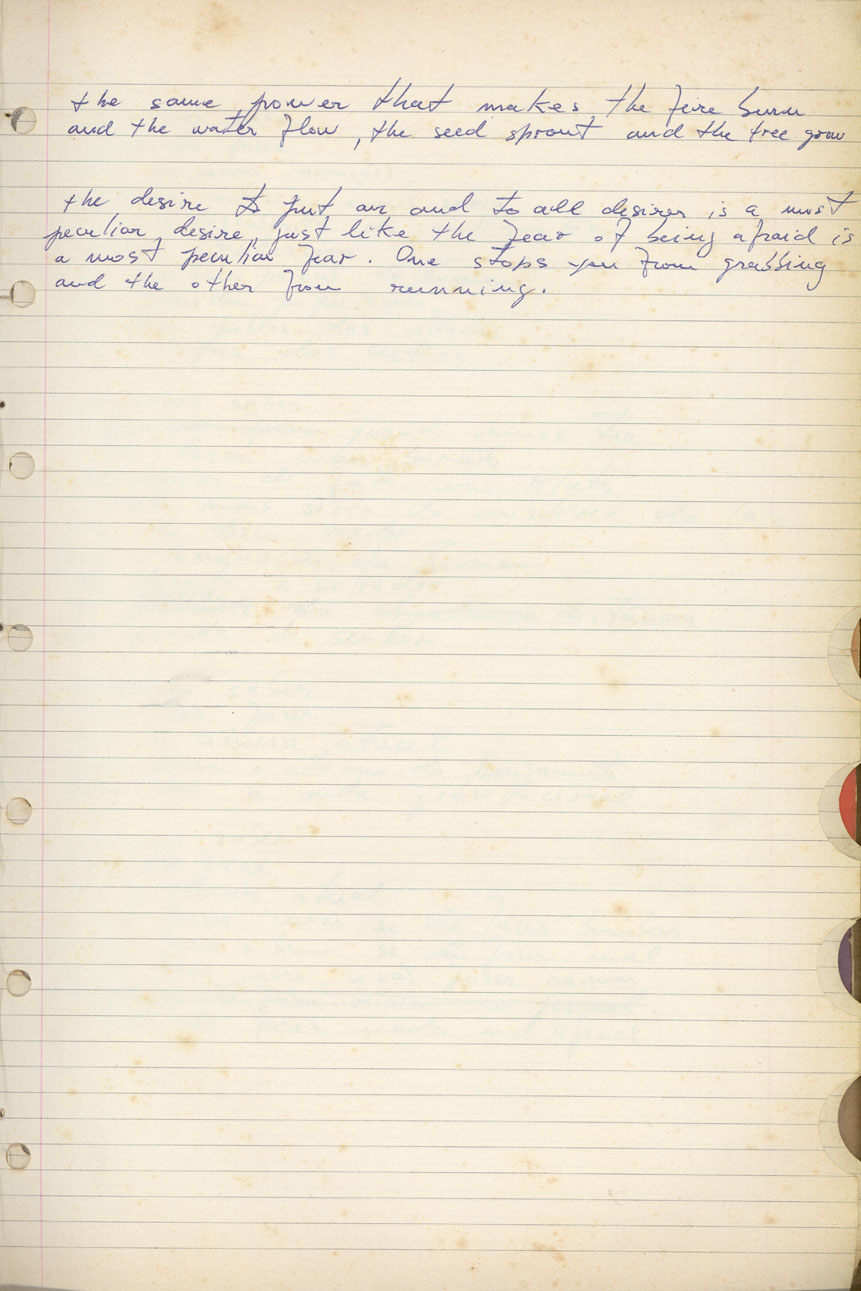 the same power that makes the fire burn
and the water flow, the seed sprout and the tree grow
the desire to put an end to all desires is a most
peculiar desire, just like the fear of being afraid is
a most peculiar fear. One stops you from grabbing
and the other from running.